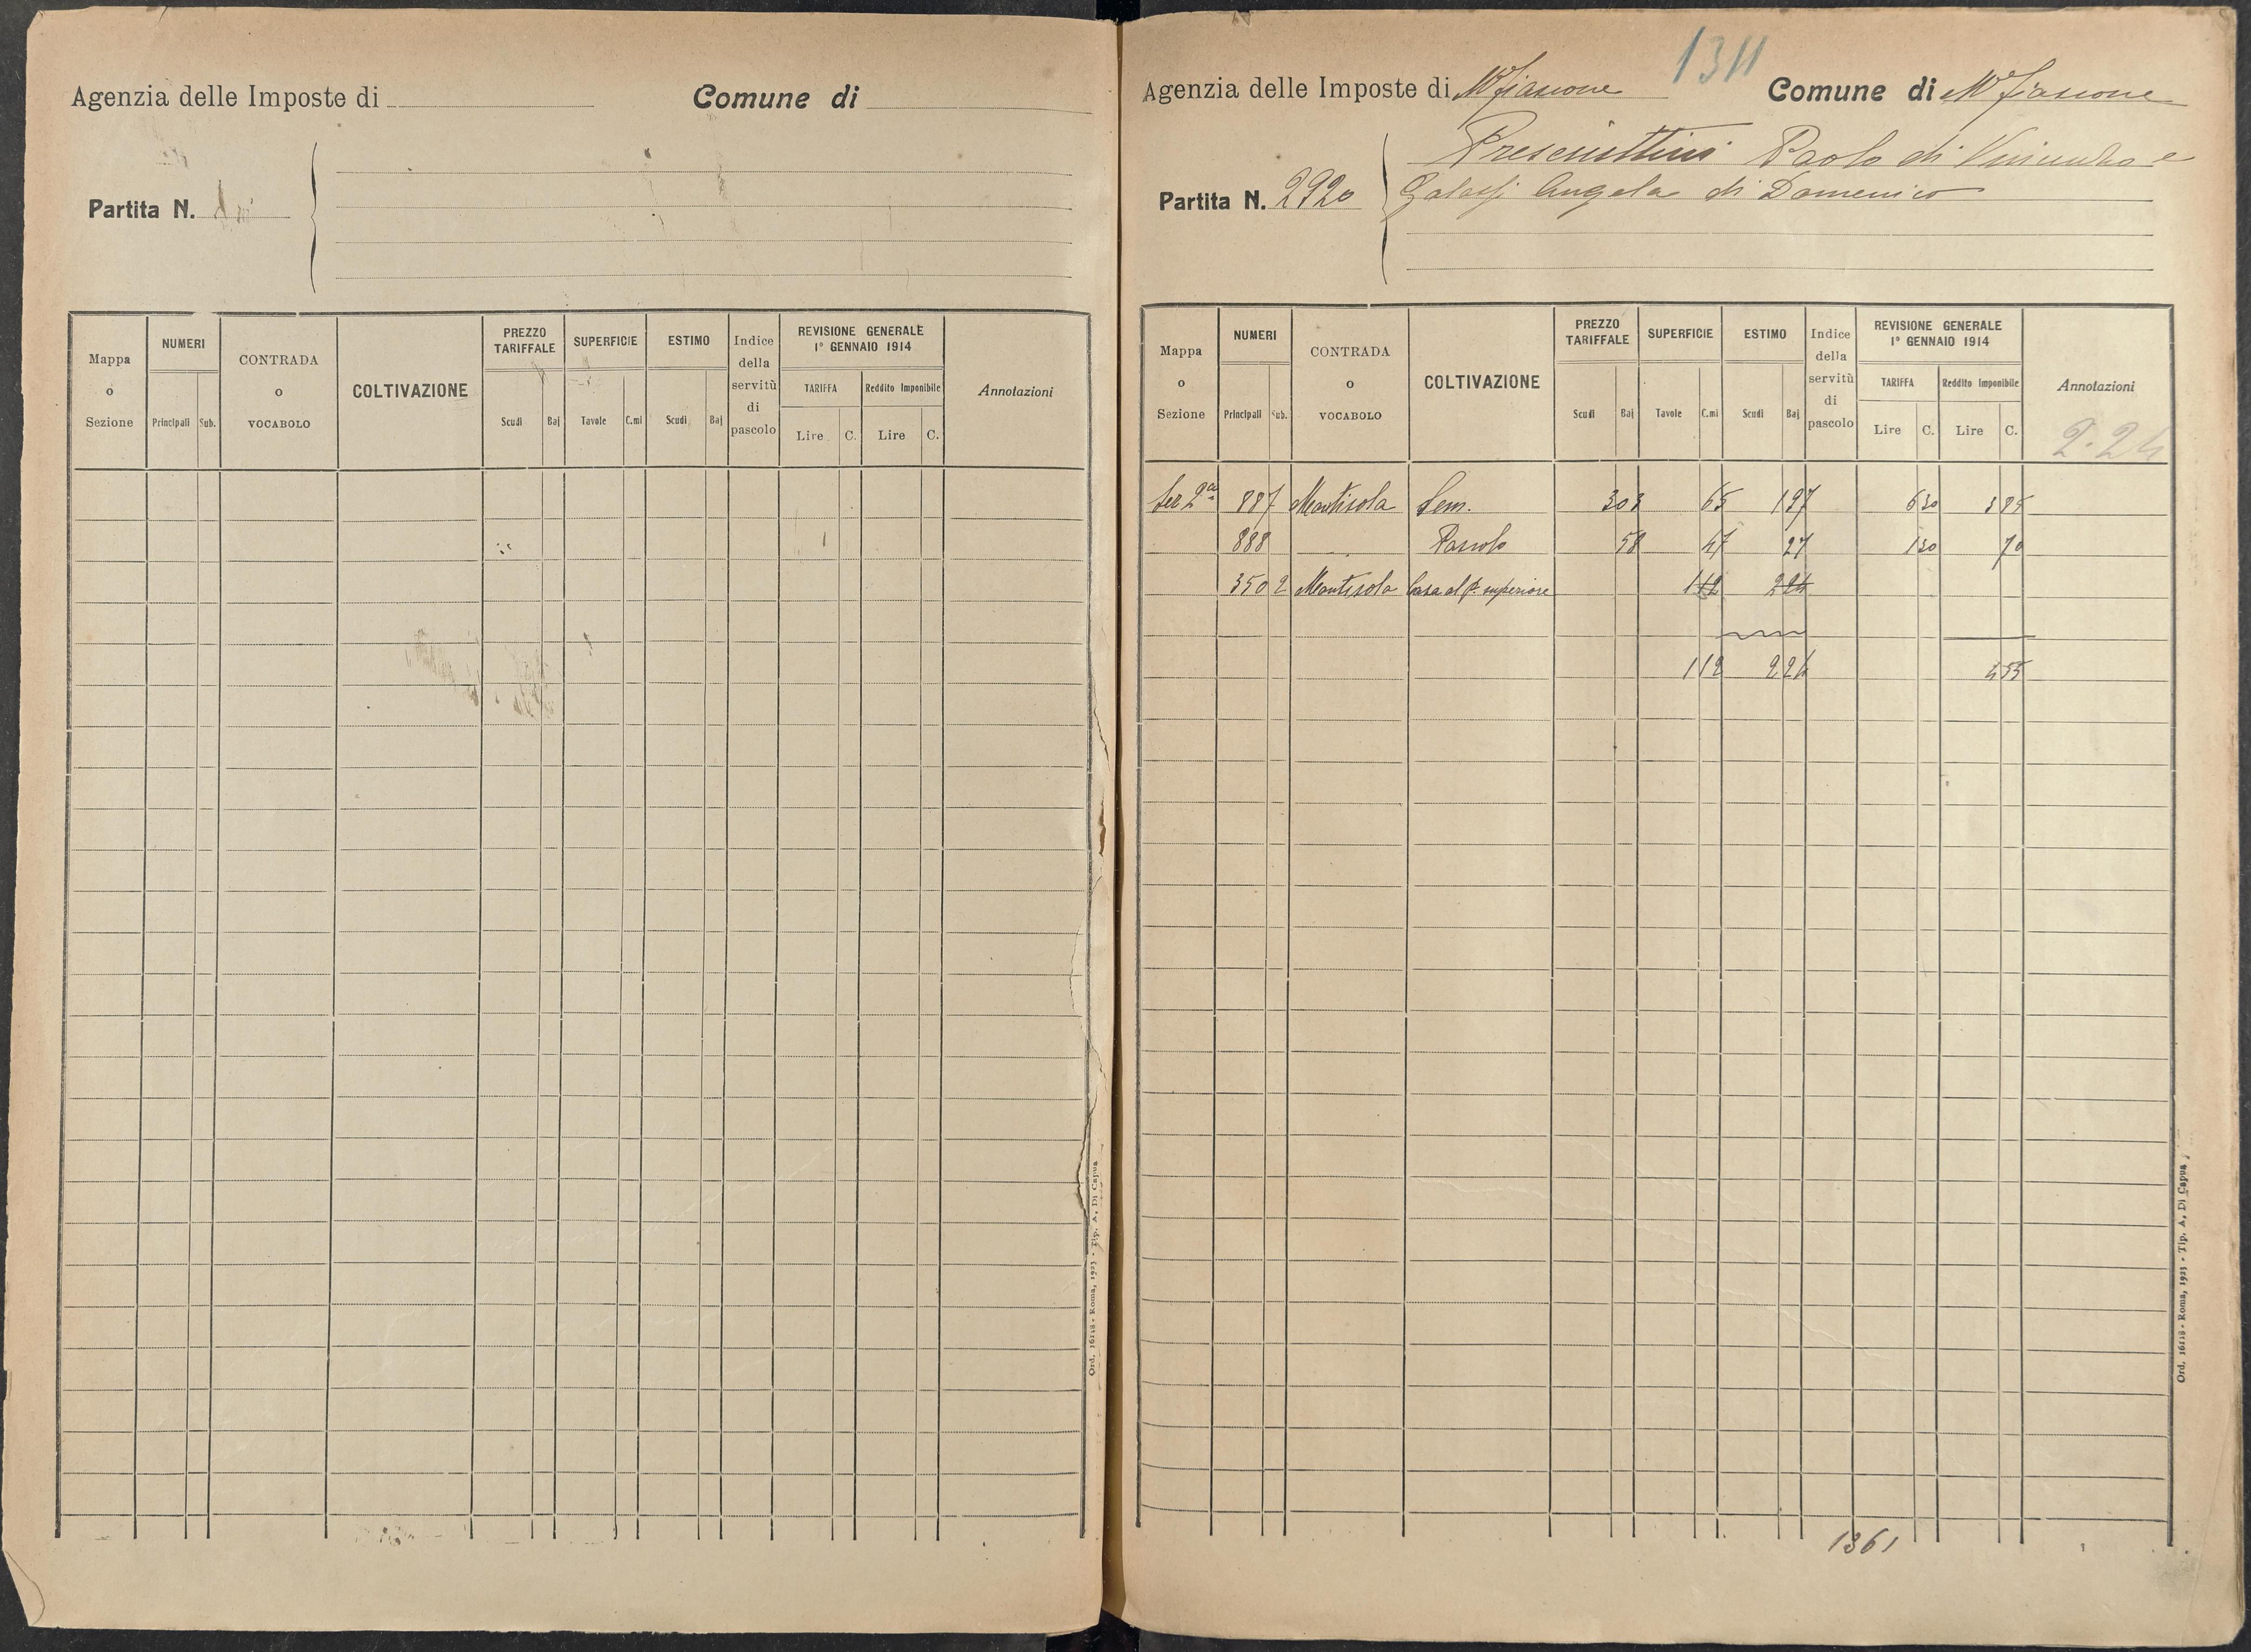 Agenzia delle Imposte di
Comune di
Partita N.
Mappa o Sezione
NUMERI
Principali Sub.
CONTRADA o VOCABOLO
COLTIVAZIONE
PREZZO TARIFFALE
Scudi Baj
SUPERFICIE
Tavole C.mi
ESTIMO
Scudi Baj
Indice della servitù di pascolo
REVISIONE GENERALE
1° GENNAIO 1914
TARIFFA Reddito Imponibile
Lire C. Lire C.
Annotazioni
Ord. 16118 - Roma, 1923 - Tip. A. Di Capua
1311
Agenzia delle Imposte di Mfiascone Comune di Mfiascone
Partita N. 2920
Presciuttini Paolo di e
Galassi Angela di Domenico
Mappa o Sezione
NUMERI
Principali Sub.
CONTRADA o VOCABOLO
COLTIVAZIONE
PREZZO TARIFFALE
Scudi Baj
SUPERFICIE
Tavole C.mi
ESTIMO
Scudi Baj
Indice della servitù di pascolo
REVISIONE GENERALE
1° GENNAIO 1914
TARIFFA Reddito Imponibile
Lire C. Lire C.
Annotazioni
2.24
Sez 2ª 887 Montisola Sem. 303 65 197 630 385
888 Pascolo 58 47 27 150 70
350 2 Montisola Casa al p. superiore 112 224
112 224 455
1361
Ord. 16118 - Roma, 1923 - Tip. A. Di Capua